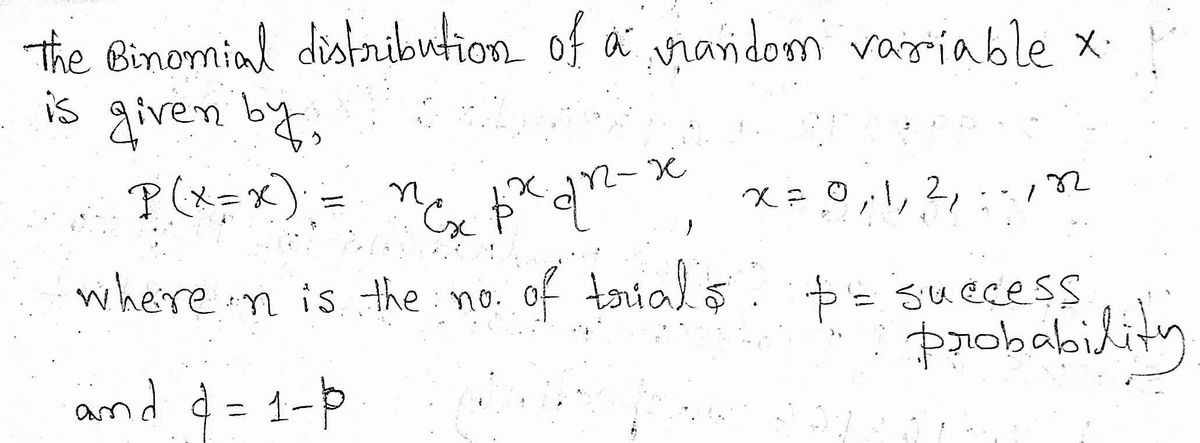 The Binomial distribution of a random variable X
is given by,
P(X=x) = ⁿCₓ pˣ qⁿ⁻ˣ, x = 0, 1, 2, .., n
where n is the no. of trials. p = success
probability
and q = 1-p